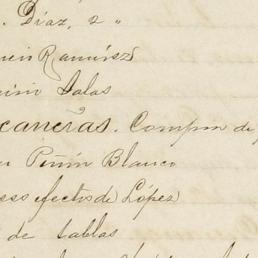 . Díaz, 2 "
Ramírez
Salas
caneras. Compra de
Pinín Blanco
efectos de López
de tablas